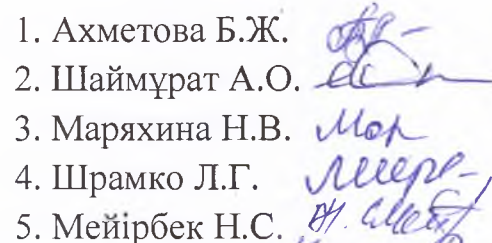 1. Ахметова Б.Ж.
2. Шаймұрат А.О.
3. Маряхина Н.В. Мар
4. Шрамко Л.Г.
5. Мейірбек Н.С.